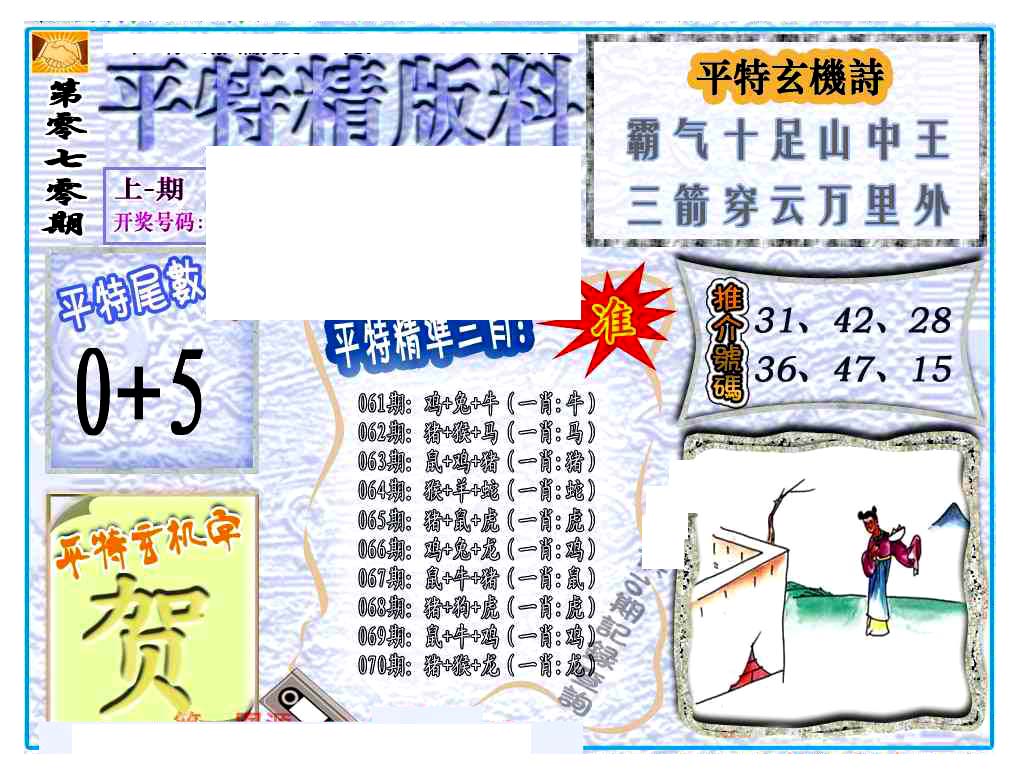 第零七零期
平特精版料
上-期
开奖号码:
平特玄機詩
霸气十足山中王
三箭穿云万里外
平特尾數
0+5
平特精準三肖!
准
推介號碼
31、42、28
36、47、15
061期: 鸡+兔+牛 (一肖:牛)
062期: 猪+猴+马 (一肖:马)
063期: 鼠+鸡+猪 (一肖:猪)
064期: 猴+羊+蛇 (一肖:蛇)
065期: 猪+鼠+虎 (一肖:虎)
066期: 鸡+兔+龙 (一肖:鸡)
067期: 鼠+牛+猪 (一肖:鼠)
068期: 猪+狗+虎 (一肖:虎)
069期: 鼠+牛+鸡 (一肖:鸡)
070期: 猪+猴+龙 (一肖:龙)
平特玄机字
贺